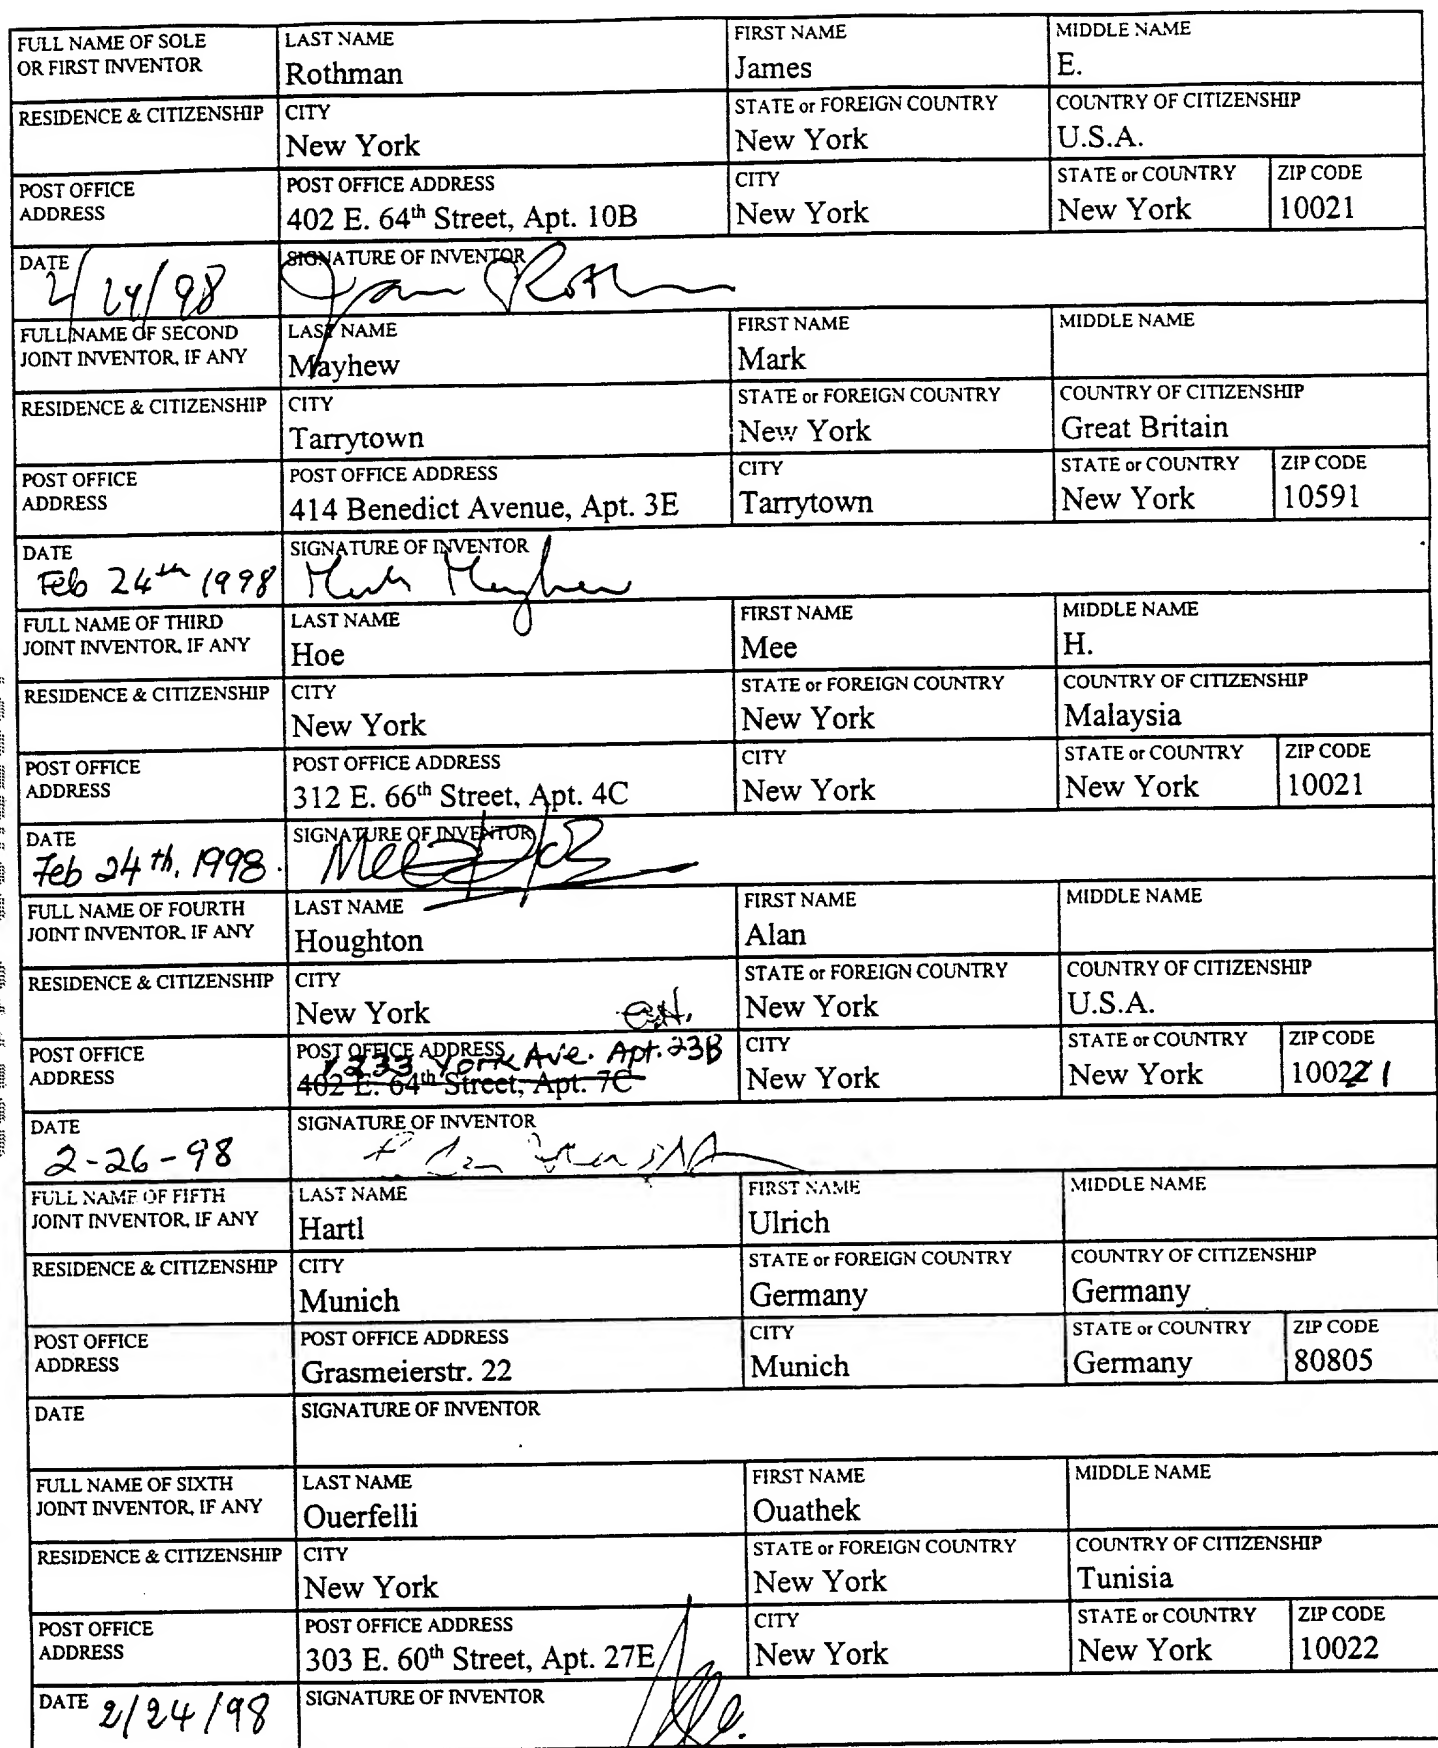 FULL NAME OF SOLE OR FIRST INVENTOR
LAST NAME
Rothman
FIRST NAME
James
MIDDLE NAME
E.
RESIDENCE & CITIZENSHIP
CITY
New York
STATE or FOREIGN COUNTRY
New York
COUNTRY OF CITIZENSHIP
U.S.A.
POST OFFICE ADDRESS
POST OFFICE ADDRESS
402 E. 64th Street, Apt. 10B
CITY
New York
STATE or COUNTRY
New York
ZIP CODE
10021
DATE
2/24/98
SIGNATURE OF INVENTOR
FULL NAME OF SECOND JOINT INVENTOR, IF ANY
LAST NAME
Mayhew
FIRST NAME
Mark
MIDDLE NAME
RESIDENCE & CITIZENSHIP
CITY
Tarrytown
STATE or FOREIGN COUNTRY
New York
COUNTRY OF CITIZENSHIP
Great Britain
POST OFFICE ADDRESS
POST OFFICE ADDRESS
414 Benedict Avenue, Apt. 3E
CITY
Tarrytown
STATE or COUNTRY
New York
ZIP CODE
10591
DATE
Feb 24th 1998
SIGNATURE OF INVENTOR
Mark Mayhew
FULL NAME OF THIRD JOINT INVENTOR, IF ANY
LAST NAME
Hoe
FIRST NAME
Mee
MIDDLE NAME
H.
RESIDENCE & CITIZENSHIP
CITY
New York
STATE or FOREIGN COUNTRY
New York
COUNTRY OF CITIZENSHIP
Malaysia
POST OFFICE ADDRESS
POST OFFICE ADDRESS
312 E. 66th Street, Apt. 4C
CITY
New York
STATE or COUNTRY
New York
ZIP CODE
10021
DATE
Feb 24th, 1998.
SIGNATURE OF INVENTOR
FULL NAME OF FOURTH JOINT INVENTOR, IF ANY
LAST NAME
Houghton
FIRST NAME
Alan
MIDDLE NAME
RESIDENCE & CITIZENSHIP
CITY
New York
STATE or FOREIGN COUNTRY
New York
COUNTRY OF CITIZENSHIP
U.S.A.
POST OFFICE ADDRESS
POST OFFICE ADDRESS
1233 York Ave. Apt. 23B
402 E. 64th Street, Apt. 7C
CITY
New York
STATE or COUNTRY
New York
ZIP CODE
10021
DATE
2-26-98
SIGNATURE OF INVENTOR
FULL NAME OF FIFTH JOINT INVENTOR, IF ANY
LAST NAME
Hartl
FIRST NAME
Ulrich
MIDDLE NAME
RESIDENCE & CITIZENSHIP
CITY
Munich
STATE or FOREIGN COUNTRY
Germany
COUNTRY OF CITIZENSHIP
Germany
POST OFFICE ADDRESS
POST OFFICE ADDRESS
Grasmeierstr. 22
CITY
Munich
STATE or COUNTRY
Germany
ZIP CODE
80805
DATE
SIGNATURE OF INVENTOR
FULL NAME OF SIXTH JOINT INVENTOR, IF ANY
LAST NAME
Ouerfelli
FIRST NAME
Ouathek
MIDDLE NAME
RESIDENCE & CITIZENSHIP
CITY
New York
STATE or FOREIGN COUNTRY
New York
COUNTRY OF CITIZENSHIP
Tunisia
POST OFFICE ADDRESS
POST OFFICE ADDRESS
303 E. 60th Street, Apt. 27E
CITY
New York
STATE or COUNTRY
New York
ZIP CODE
10022
DATE 2/24/98
SIGNATURE OF INVENTOR